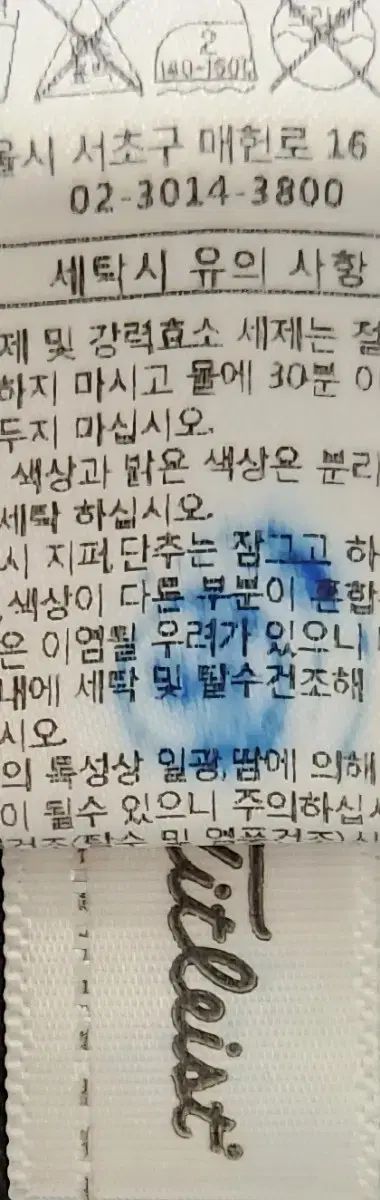 2
140-160℃
울시 서초구 매헌로 16
02-3014-3800
세탁시 유의 사항
제 및 강력효소 세제는 절
하지 마시고 물에 30분 이
두지 마십시오.
색상과 밝은 색상은 분리
세탁 하십시오.
시 지퍼,단추는 잠그고 하
,색상이 다른 부분이 혼합
은 이염될 우려가 있으니
내에 세탁 및 탈수건조해
시오.
의 특성상 일광,땀에 의해
이 될수 있으니 주의하십시
Titleist